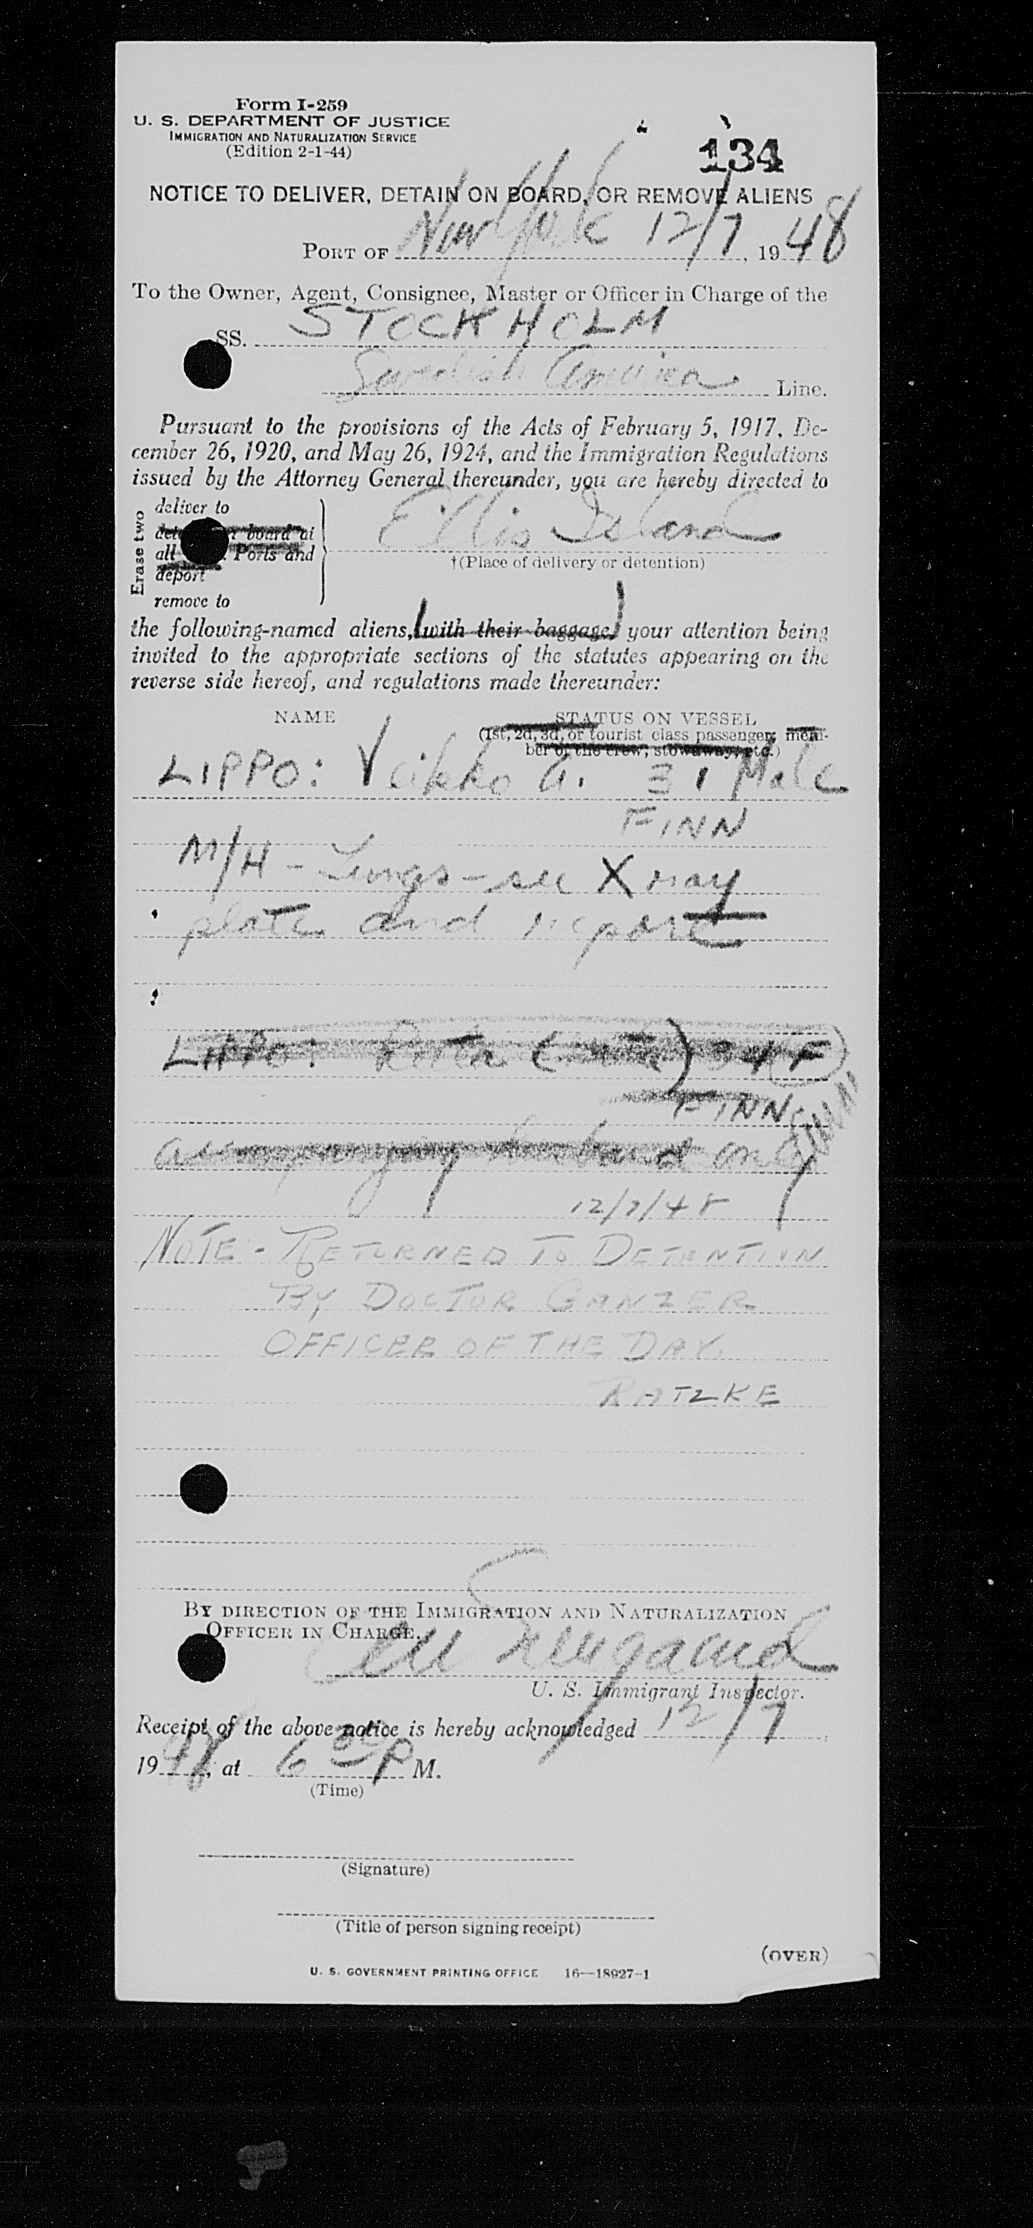 Form I-259
U. S. DEPARTMENT OF JUSTICE
IMMIGRATION AND NATURALIZATION SERVICE
(Edition 2-1-44)
134
NOTICE TO DELIVER, DETAIN ON BOARD, OR REMOVE ALIENS
PORT OF New York 12/7, 1948
To the Owner, Agent, Consignee, Master or Officer in Charge of the
SS. STOCKHOLM
Swedish American Line.
Pursuant to the provisions of the Acts of February 5, 1917, De-
cember 26, 1920, and May 26, 1924, and the Immigration Regulations
issued by the Attorney General thereunder, you are hereby directed to
Erase two
deliver to
board at
all Ports and
deport
remove to
Ellis Island
†(Place of delivery or detention)
the following-named aliens, (with their baggage) your attention being
invited to the appropriate sections of the statutes appearing on the
reverse side hereof, and regulations made thereunder:
NAME
STATUS ON VESSEL
(1st, 2d, 3d, or tourist class passenger, mem-
ber of the crew, stowaway, etc.)
LIPPO: Veikko A. 31 Male
FINN
M/H - Lungs - see X ray
plate and report
LIPPO: F
FINN
accompanying husband only
12/7/48
NOTE - RETURNED TO DETENTION
BY DOCTOR GANZER
OFFICER OF THE DAY.
RATZKE
BY DIRECTION OF THE IMMIGRATION AND NATURALIZATION
OFFICER IN CHARGE.
U. S. Immigrant Inspector.
Receipt of the above notice is hereby acknowledged 12/7,
1948, at 6 30 P M.
(Time)
(Signature)
(Title of person signing receipt)
(OVER)
U. S. GOVERNMENT PRINTING OFFICE 16—18927-1